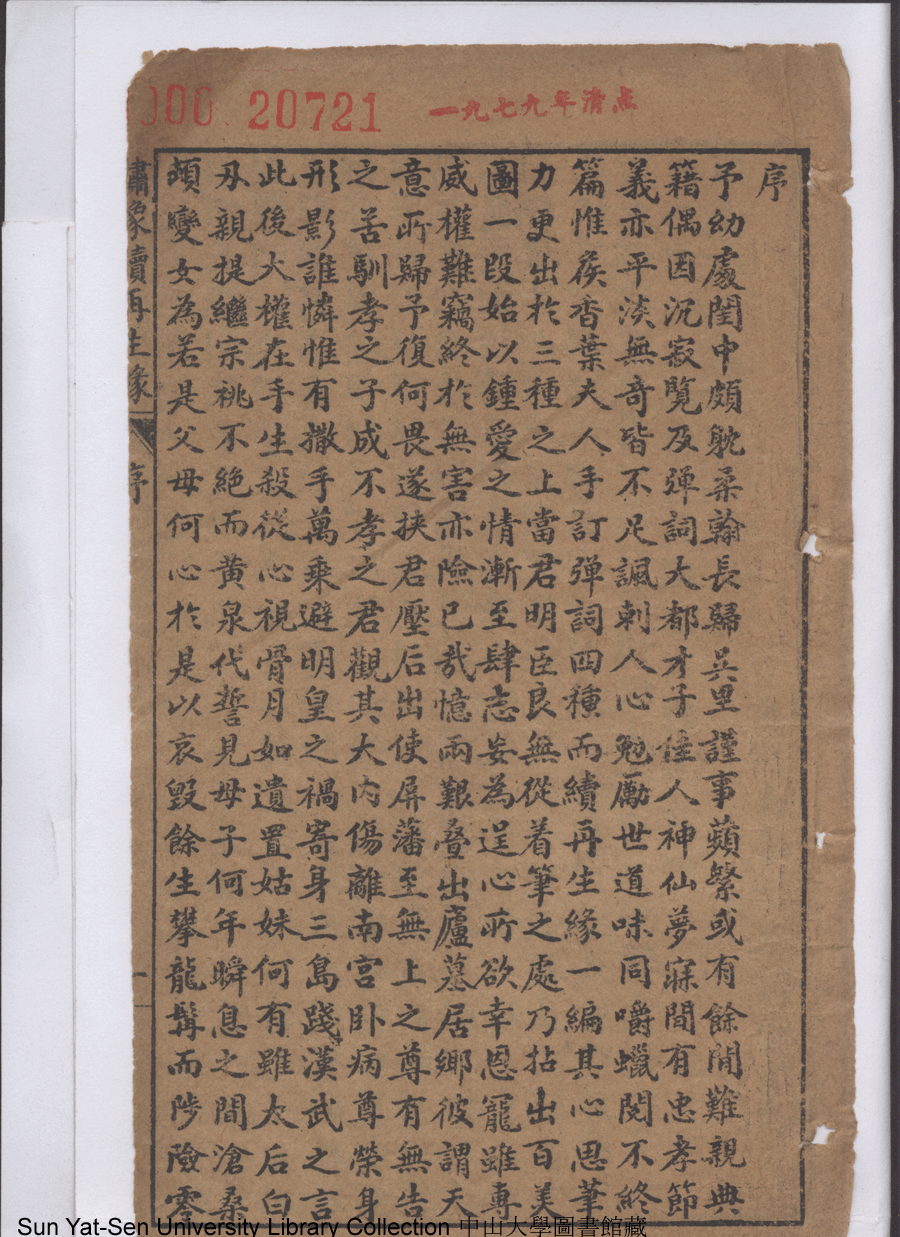 000 20721
一九七九年清点
序
予幼處閨中頗躭柔翰長歸呉里謹事蘋繁或有餘閒難親典
籍偶因沉寂覧及弹詞大都才子佳人神仙夢寐間有忠孝節
義亦平淡無竒皆不足諷刺人心勉勵世道味同嚼蠟閱不終
篇惟侯香葉夫人手訂弹詞四種而續再生緣一編其心思筆
力更出於三種之上當君明臣良無從着筆之處乃拈出百美
圖一段始以鍾愛之情漸至肆志妄為逞心所欲幸恩寵雖專
威權難竊終於無害亦險已哉憶兩艱叠出廬墓居鄉彼謂天
意所歸予復何畏遂挟君壓后出使屏藩至無上之尊有無告
之苦馴孝之子成不孝之君觀其大内傷離南宫卧病尊榮身
形影誰憐惟有撒手萬乗避明皇之禍寄身三島踐漢武之言
此後大權在手生殺從心視骨月如遺置姑妹何有雖太后白
刄親提繼宗祧不絕而黄泉代誓見母子何年瞬息之間滄桑
頓變女為若是父母何心於是以哀毁餘生攀龍髯而陟險零
繡像續再生緣
序
一
Sun Yat-Sen University Library Collection 中山大學圖書館藏